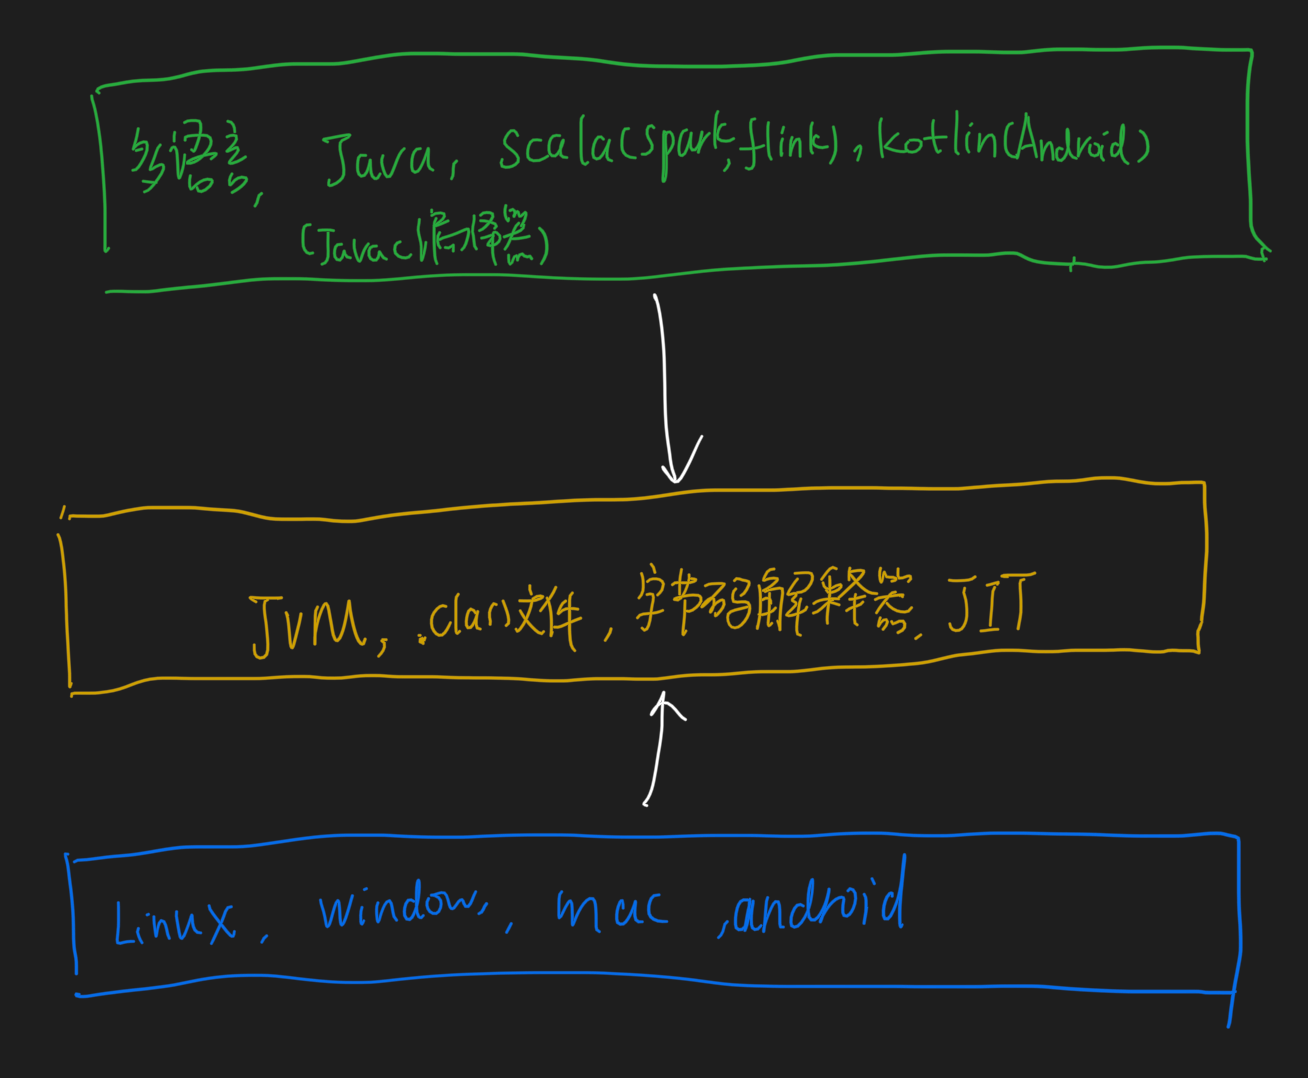 多语言, Java, Scala(spark,flink), kotlin(Android)
(Javac编译器)
JVM, .class文件, 字节码解释器, JIT
Linux, window, mac, android